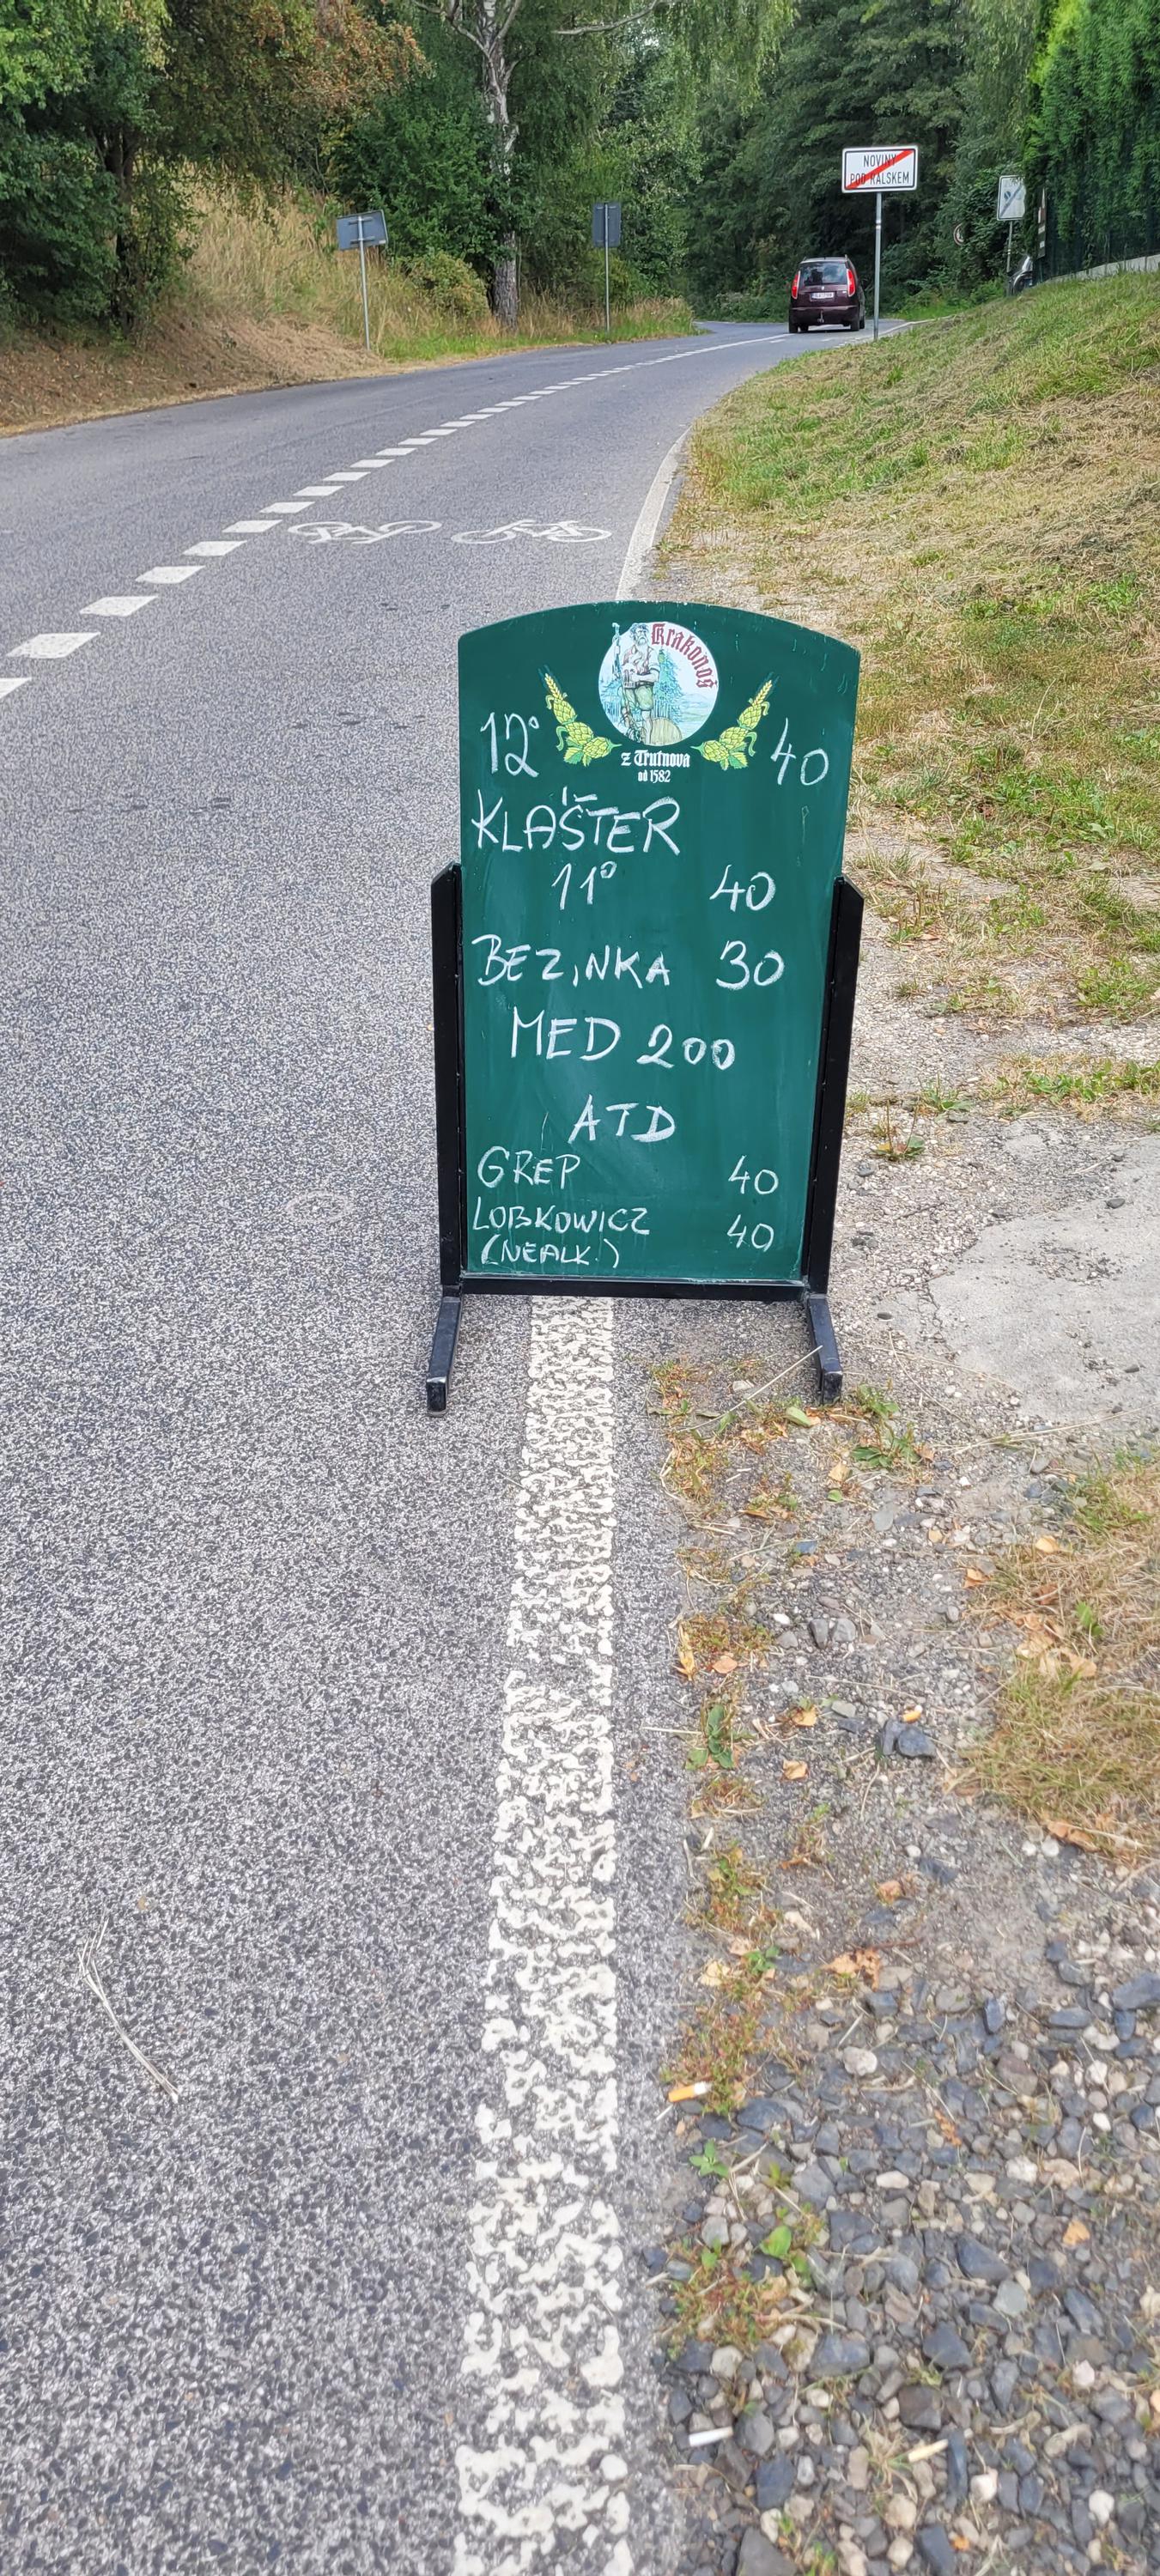 NOVINY
POD RALSKEM
Krakonoš
z Trutnova
od 1582
12° 40
KLÁŠTER
11° 40
BEZ,NKA 30
MED 200
ATD
GREP 40
LOBKOWICZ 40
(NEALK.)